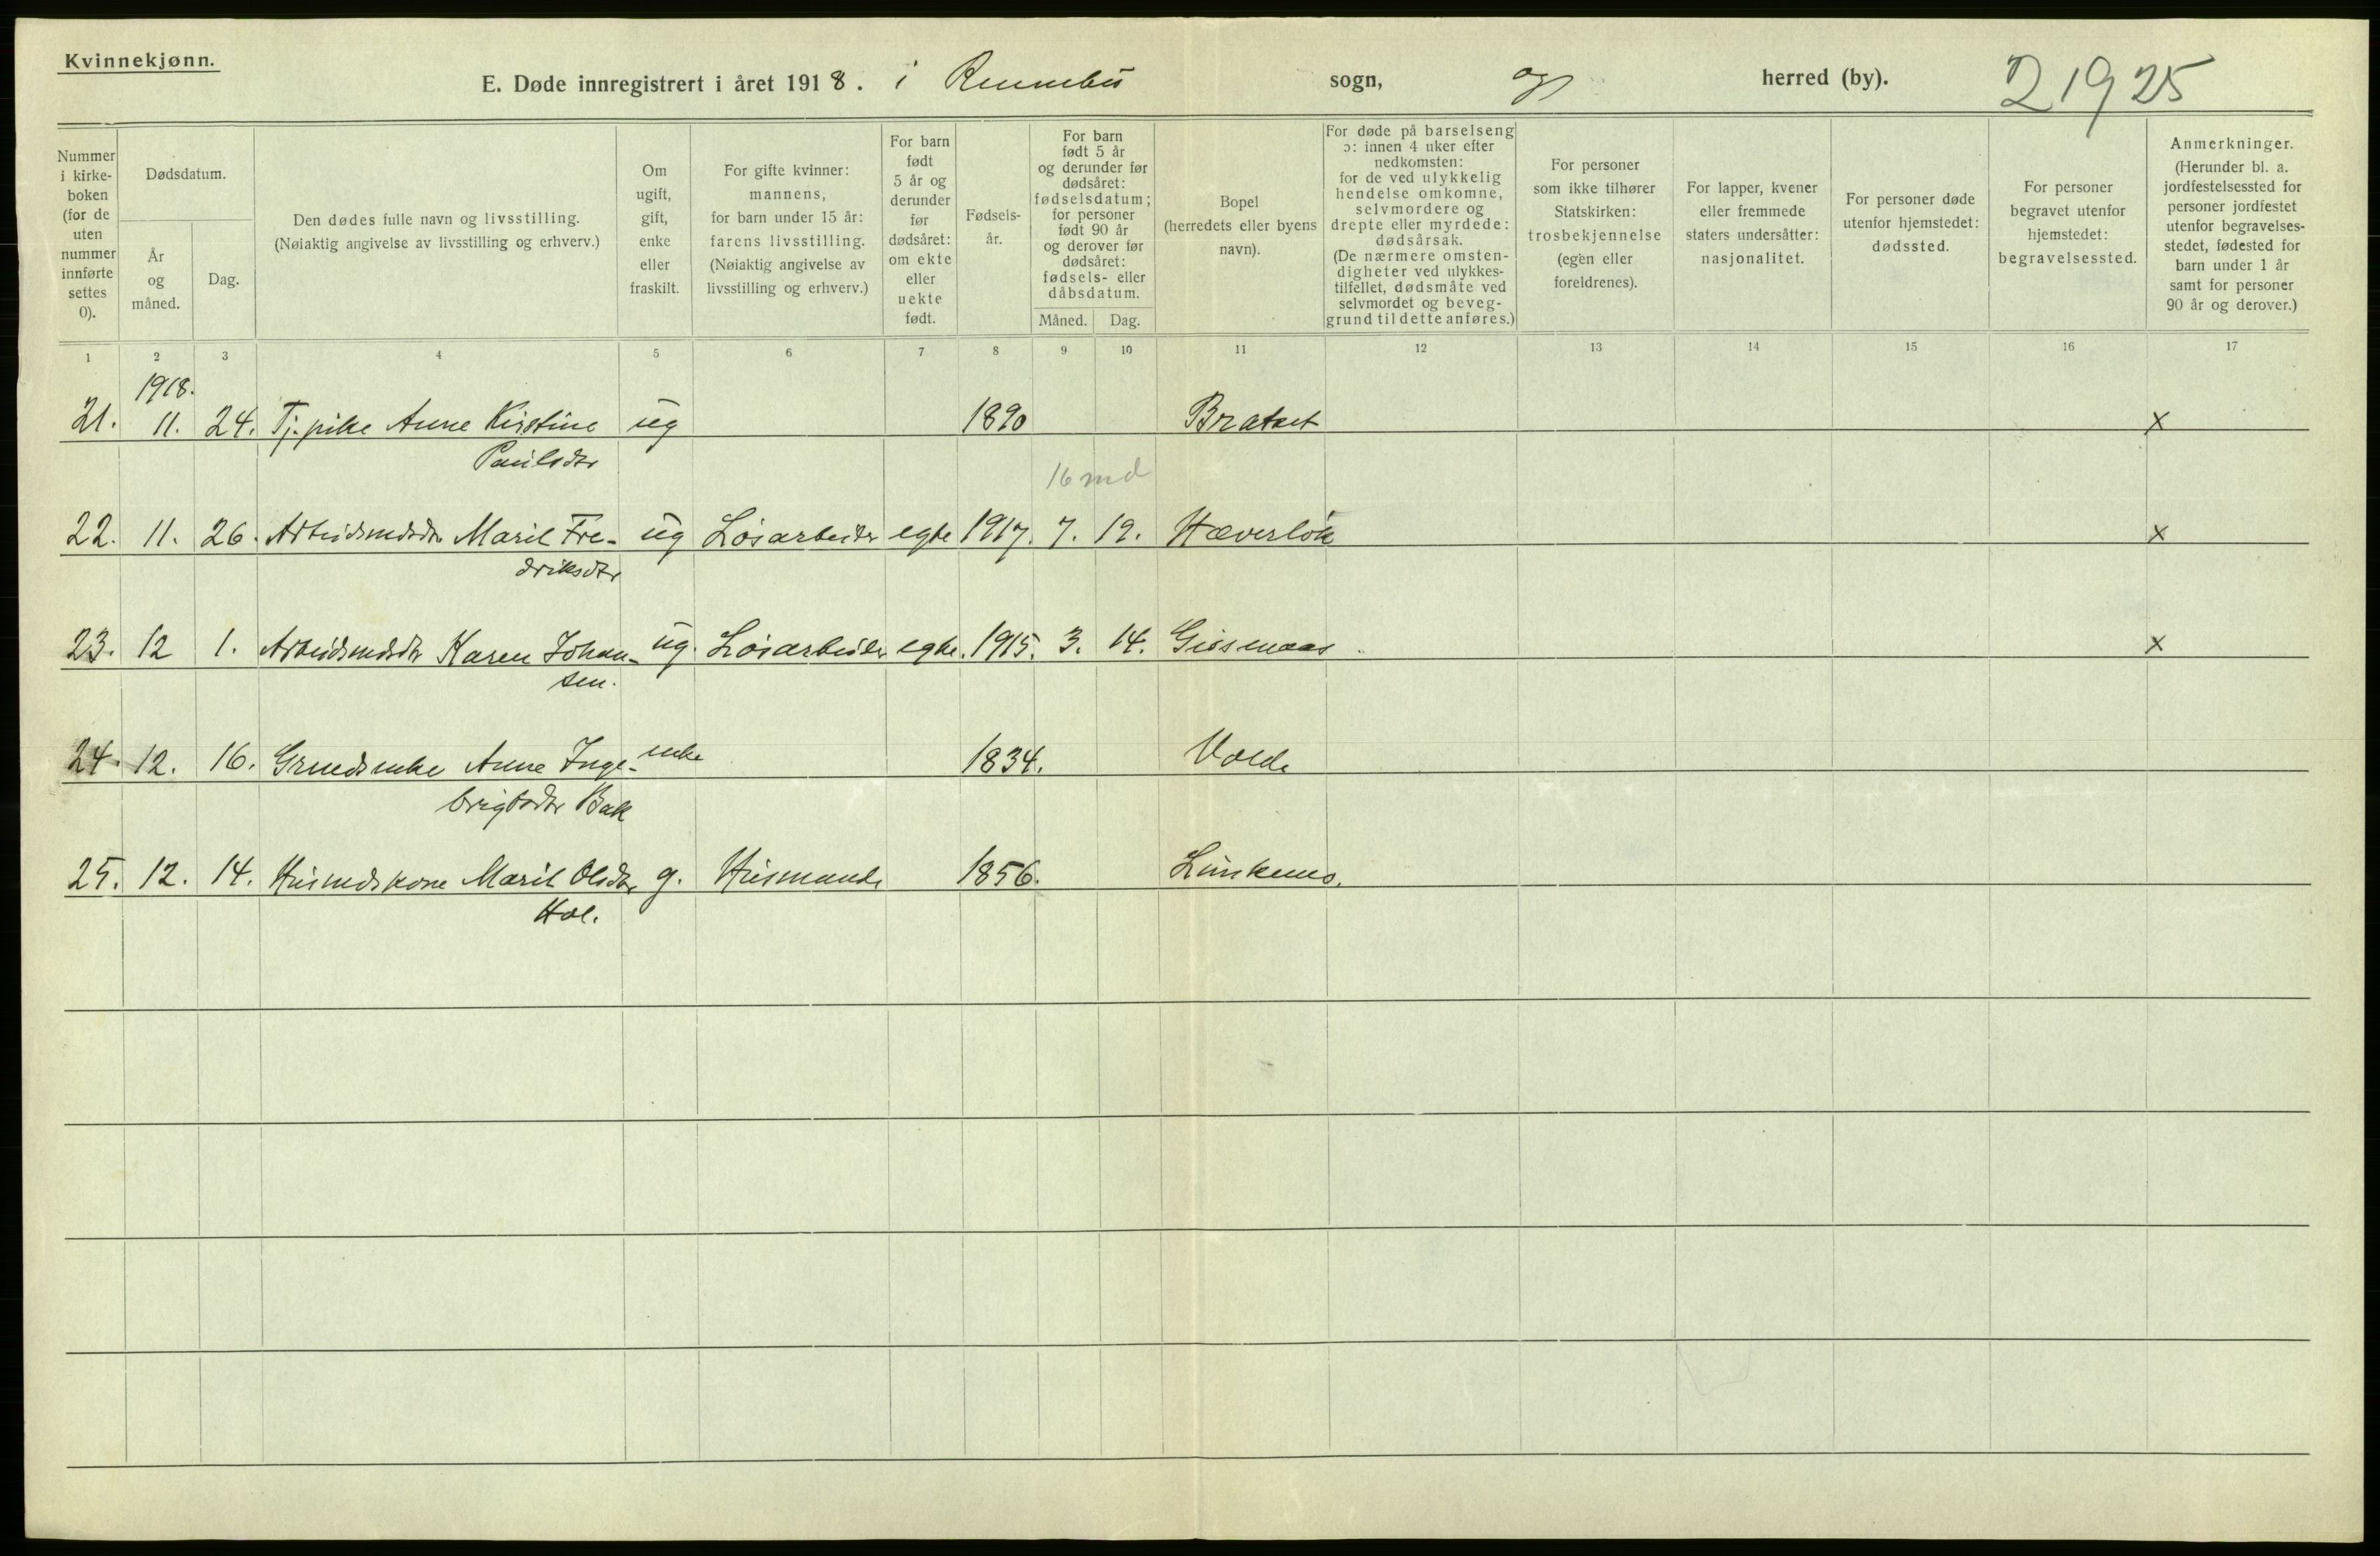 Kvinnekjønn.
E. Døde innregistrert i året 1918. i Rennebu sogn, og herred (by). 21925
Nummer i kirkeboken (for de uten nummer innførte settes 0).
Dødsdatum.
År og måned.
Dag.
Den dødes fulle navn og livsstilling.
(Nøiaktig angivelse av livsstilling og erhverv.)
Om ugift, gift, enke eller fraskilt.
For gifte kvinner: mannens, for barn under 15 år: farens livsstilling. (Nøiaktig angivelse av livsstilling og erhverv.)
For barn født 5 år og derunder før dødsåret: om ekte eller uekte født.
Fødsels-år.
For barn født 5 år og derunder før dødsåret: fødselsdatum; for personer født 90 år og derover før dødsåret: fødsels- eller dåbsdatum.
Måned. Dag.
Bopel (herredets eller byens navn).
For døde på barselseng ɔ: innen 4 uker efter nedkomsten: for de ved ulykkelig hendelse omkomne, selvmordere og drepte eller myrdede: dødsårsak. (De nærmere omstendigheter ved ulykkestilfellet, dødsmåte ved selvmordet og beveggrund til dette anføres.)
For personer som ikke tilhører Statskirken: trosbekjennelse (egen eller foreldrenes).
For lapper, kvener eller fremmede staters undersåtter: nasjonalitet.
For personer døde utenfor hjemstedet: dødssted.
For personer begravet utenfor hjemstedet: begravelsessted.
Anmerkninger. (Herunder bl. a. jordfestelsessted for personer jordfestet utenfor begravelsesstedet, fødested for barn under 1 år samt for personer 90 år og derover.)
1 2 3 4 5 6 7 8 9 10 11 12 13 14 15 16 17
1918.
21. 11. 24. Tj. pike Anne Kirstine ug 1890 Bratset x
Paulsdtr
16 md
22. 11. 26. Arbeidsmdsdtr Marit Fre- ug Løsarbeider egte 1917. 7. 19. Hæverløk x
driksdtr
23. 12 1. Arbeidsmdsdtr Karen Johan- ug. Løsarbeider egte. 1915. 3. 14. Gisemaas x
sen.
24. 12. 16. Grmdsenke Anne Inge- enke 1834. Volde
brigtsdtr Bak
25. 12. 14. Husmdskone Marit Olsdtr g. Husmand 1856.
Hol.